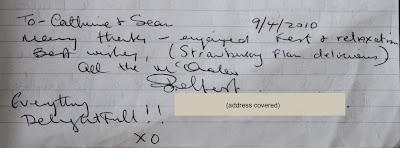 To - Catherine & Sean 9/4/2010
Many thanks - enjoyed rest & relaxation
Best wishes, (Strawberry Flan delicious)
all the McPhalen
Belfast.
(address covered)
Everything
Delightfull!!
XO